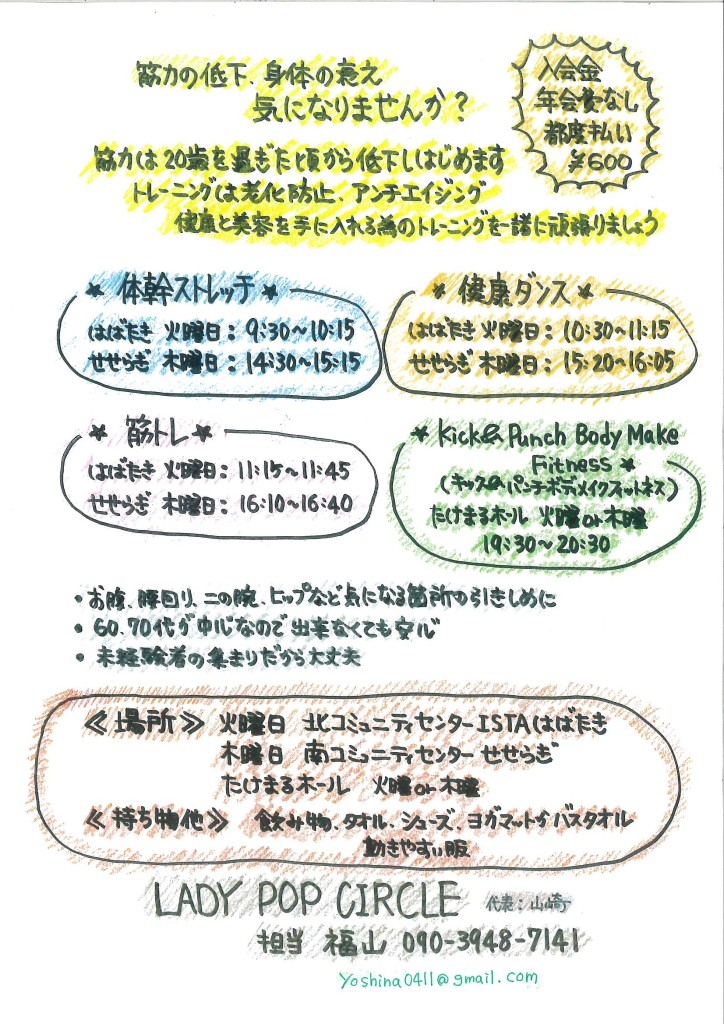 筋力の低下、身体の衰え
気になりませんか？
入会金
年会費なし
都度払い
¥600
筋力は20歳を過ぎた頃から低下しはじめます
トレーニングは老化防止、アンチエイジング
健康と美容を手に入れる為のトレーニングを一諸に頑張りましょう
★ 体幹ストレッチ ★
はばたき 火曜日：9:30～10:15
せせらぎ 木曜日：14:30～15:15
★ 健康ダンス ★
はばたき 火曜日：10:30～11:15
せせらぎ 木曜日：15:20～16:05
★ 筋トレ ★
はばたき 火曜日：11:15～11:45
せせらぎ 木曜日：16:10～16:40
★ Kick& Punch Body Make
Fitness ★
(キック&パンチボディメイクフィットネス)
たけまるホール 火曜or木曜
19:30～20:30
・お腹、腰回り、二の腕、ヒップなど気になる箇所の引きしめに
・60、70代が中心なので出来なくても安心
・未経験者の集まりだから大丈夫
≪場所≫ 火曜日 北コミュニティセンターISTAはばたき
木曜日 南コミュニティセンター せせらぎ
たけまるホール 火曜or木曜
≪持ち物他≫ 飲み物、タオル、シューズ、ヨガマットかバスタオル
動きやすい服
LADY POP CIRCLE 代表：山崎
担当 福山 090-3948-7141
Yoshina0411@gmail.com